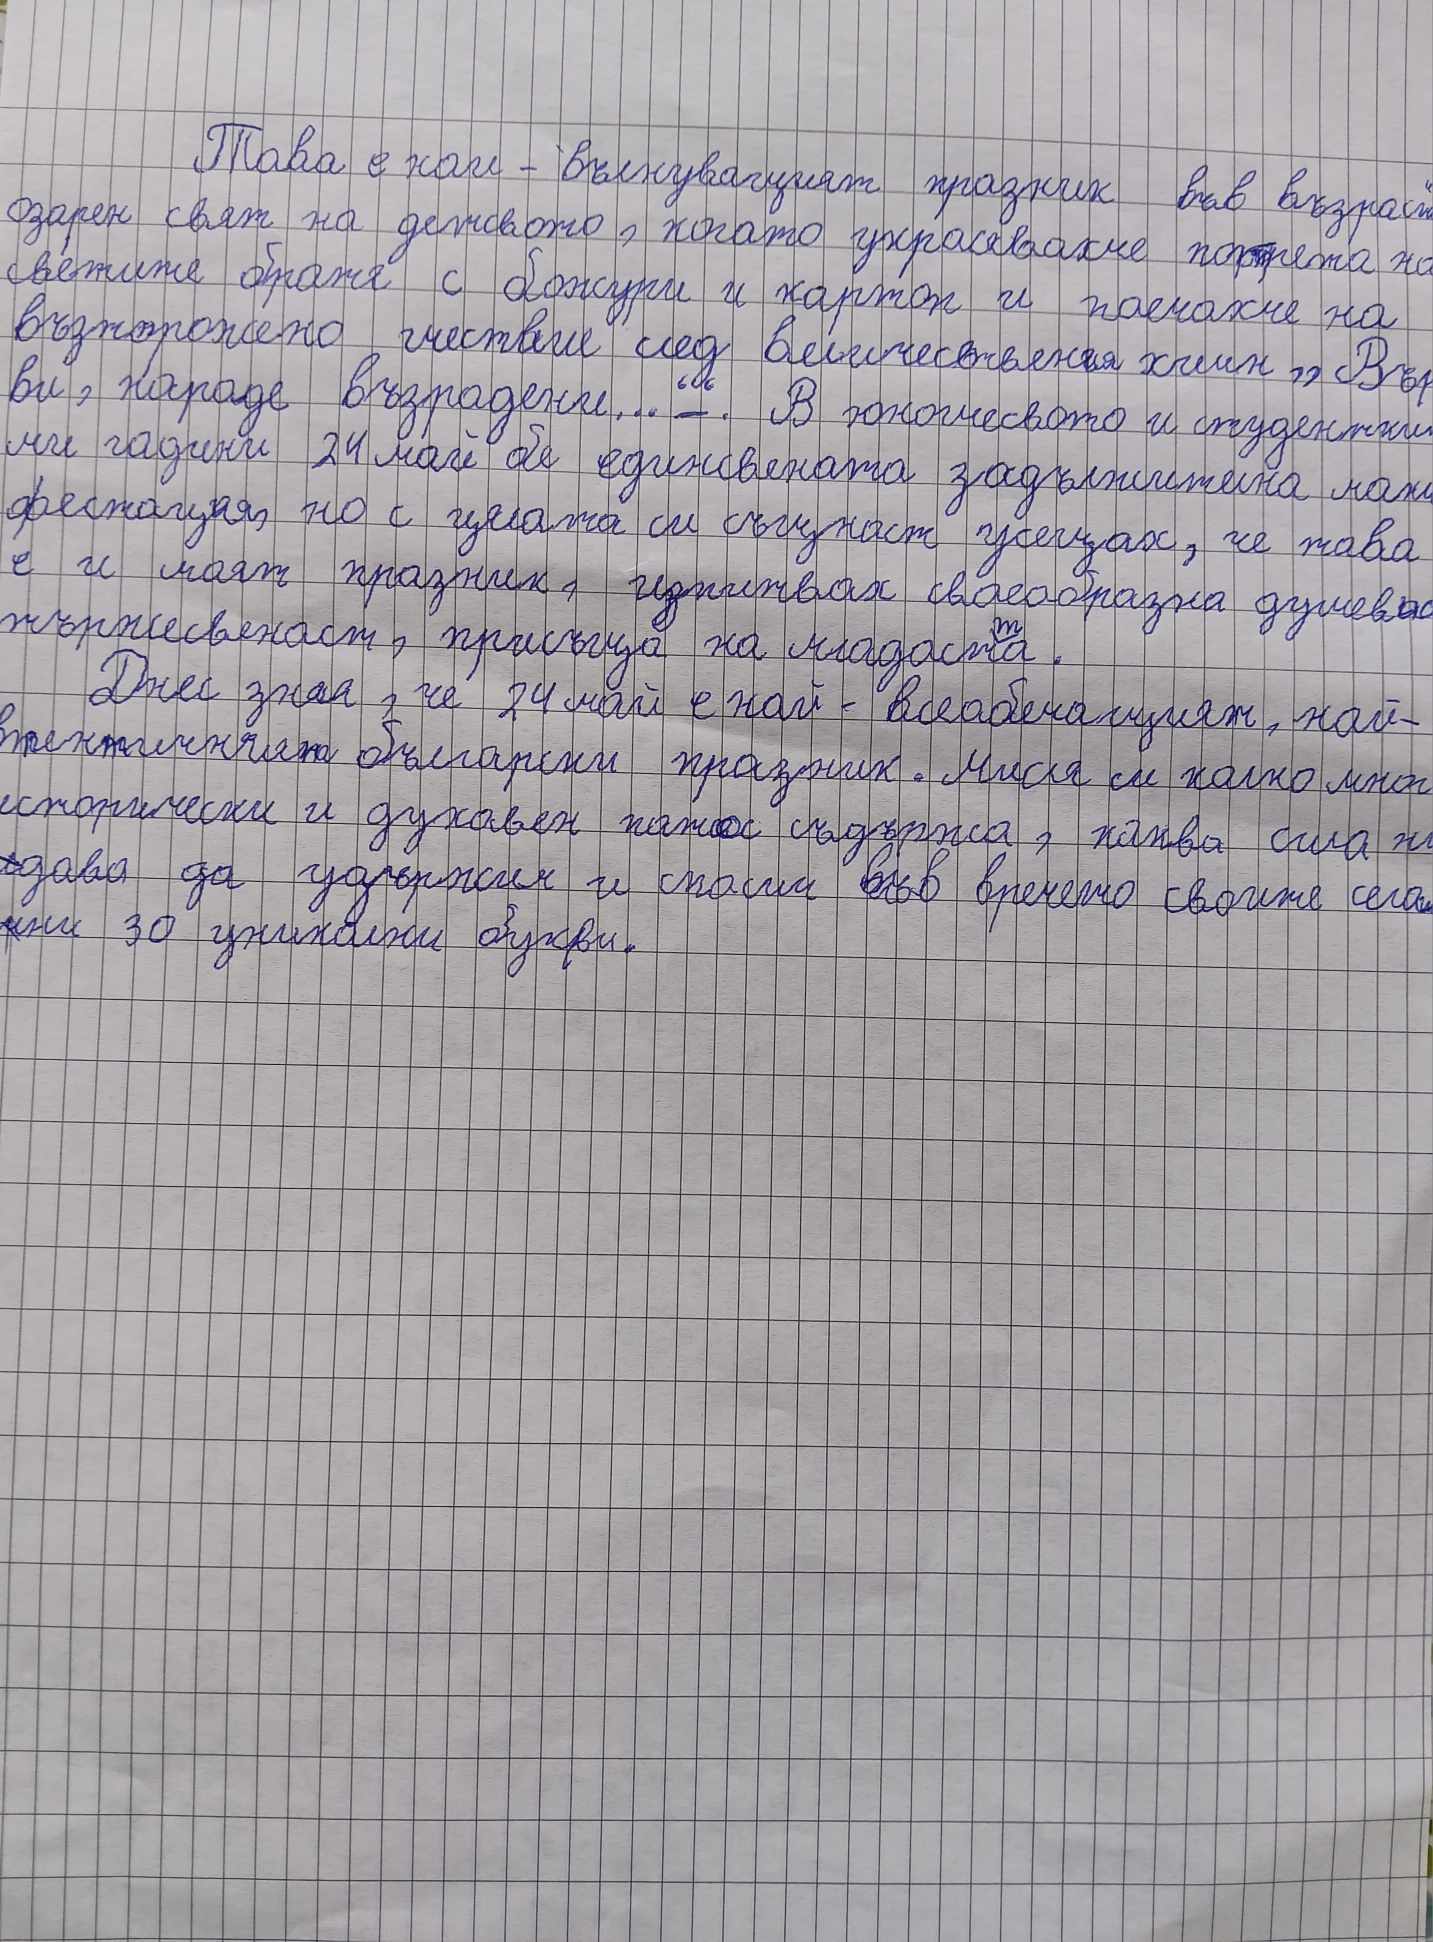 Това е най-вълнуващият празник във възраст
озарен свят на детсвото, когато украсявахме портрета на
светите братя с божури и картон и поемахме на
възторжено шествие след величествения химн „Вър
ви, народе възрадени...“. В юношесвото и студентски
ми години 24 май бе единсвената задължителна мани
фестация, но с цялата си същнаст усещах, че това
е и маят празник, изпитвах своеобразна душевно
тържесвенаст, присъща на младастта.
Днес зная, че 24 май е най-всеабемащият, най-
втентичният български празник. Мисля си колко мног
исторически и духавен патос съдържа, каква сила ни
дава да удържим и спасим във времето своите сега
шни 30 уникални букви.